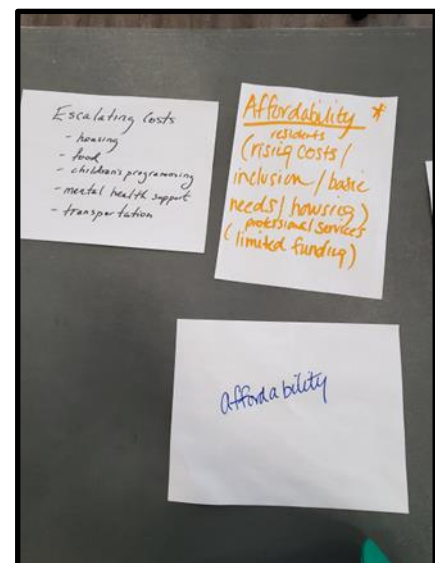 Escalating Costs
- housing
- food
- children's programming
- mental health support
- transportation
Affordability *
residents
(rising costs /
inclusion / basic
needs / howsing)
professional services
( limited funding )
affordability